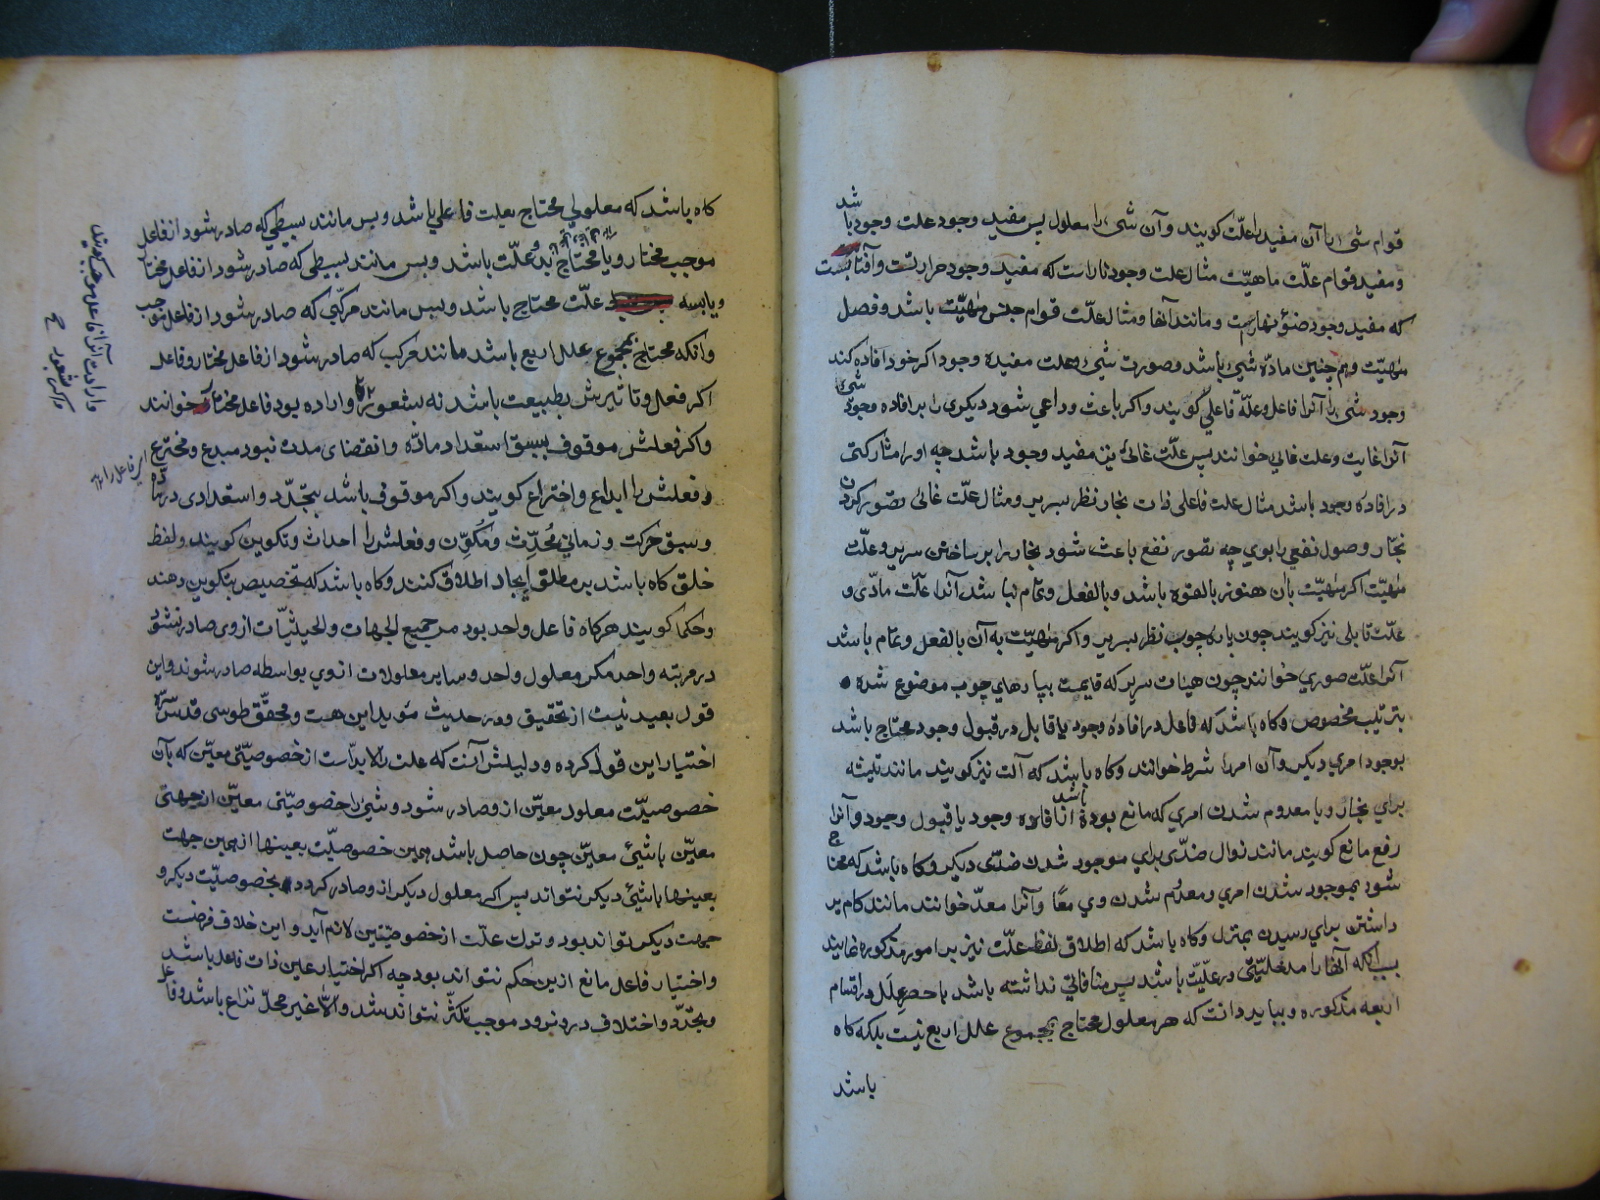 قوام شیء را آن مفید را علّت کویند و آن شیء را معلول پس مفید وجود علت وجود باشد
و مفید قوام علّت ماهیّت مثال علت وجود نار است که مفید وجود حرارتست و آفتابست
که مفید وجود ضوء نهارست و مانند آنها و مثال علّت قوام جنس مهیّت باشد و فصل
مهیّت و هم چنین مادّهٔ شیء باشد و صورت شیء و علت مفیده وجود اکر خود افاده کند
وجود شیء را آنرا فاعل و علّة فاعلی کویند و اکر باعث و داعی شود دیکری را بر افاده وجود شیء
آنرا غایت و علت غائی خوانند پس علّت غائی نیز مفید وجود باشد چه او را مشارکتی
در افاده وجود باشد مثال علت فاعلی ذات نجار نظر بسریر و مثال علّت غائی تصور کردن
نجار وصول نفعی را بوی چه تصور نفع باعث شود نجار را بر ساختن سریر و علّت
مهیّت اکر مهیّت بان هنوز بالقوه باشد و بالفعل و تمام نباشد آنرا علّت مادّی و
علّت قابلی نیز کویند چون پاره چوب نظر بسریر و اکر مهیّت به آن بالفعل و تمام باشد
آنرا علّت صوری خوانند چون هیئات سریر که قایمست بپارهای چوب موضوع شده
بترتیب مخصوص و کاه باشد که فاعل در افاده وجود یا قابل در قبول وجود محتاج باشد
بوجود امری دیکر و آن امر را شرط خوانند و کاه باشد که آلت نیز کویند مانند تیشه
برای نجار و یا معدوم شدن امری که مانع بوده باشد از افاده وجود یا قبول وجود و آنرا
رفع مانع کویند مانند زوال ضدّی برای موجود شدن ضدّی دیکر و کاه باشد که محتاج
شود بموجود شدن امری و معدوم شدن وی معًا و آنرا معدّ خوانند مانند کام بر
داشتن برای رسیدن بمنزل و کاه باشد که اطلاق لفظ علّت نیز بر امور مذکوره نمایند
بسبب آنکه آنها را مدخلیّتی در علیّت باشد پس منافاتی نداشته باشد با حصر علل در اقسام
اربعه مذکوره و بباید دانست که هر معلول محتاج بمجموع علل اربع نیست بلکه کاه
باشد
کاه باشد که معلولی محتاج بعلت فاعلی باشد و بس مانند بسیطی که صادر شود از فاعل
موجب مختار و یا محتاج بدو علّت باشد و بس مانند بسیطی که صادر شود از فاعل مختار
و یا بسه علّت محتاج باشد و بس مانند مرکّبی که صادر شود از فاعل موجب
و انکه محتاج بمجموع علل اربع باشد مانند مرکب که صادر شود از فاعل مختار و فاعل
اکر فعل و تاثیرش بطبیعت باشد نه بشعور و اراده بود فاعل مختار خوانند
و اکر فعلش موقوف بسبق استعداد مادّه و انقضای مدت نبود مبدع و مخترع
و فعلش را ابداع و اختراع کویند و اکر موقوف باشد بتجدّد و استعدادی در مادّه
و سبق حرکت و زمانی محُدِث و مُکَوِّن و فعلش را احداث و تکوین کویند و لفظ
خلق کاه باشد بر مطلق ایجاد اطلاق کنند و کاه باشد که تخصیص بتکوین دهند
و حکما کویند هر کاه فاعل واحد بود من جمیع الجهات و الحیثیّات از وی صادر نشود
در مرتبه واحد مکر معلول واحد و سایر معلولات از وی بواسطه صادر شوند و این
قول بعید نیست از تحقیق و در حدیث مؤید این هست و محقّق طوسی قدّس سرّه
اختیار این قول کرده و دلیلش آنست که علت را لابدّ است از خصوصیّتی معیّن که بآن
خصوصیّت معلول معیّن از و صادر شود و شیء را خصوصیّتی معیّن از جهتی
معیّن با شیئ معیّن چون حاصل باشد همین خصوصیّت بعینها از همین جهت
بعینها با شیئی دیکر نتواند پس اکر معلول دیکر از و صادر کردد بخصوصیّت دیکر و
جهت دیکر تواند بود و ترک علّت از خصوصیّتین لازم آید و این خلاف فرضست
و اختیار فاعل مانع ازین حکم نتواند بود چه اکر اختیار عین ذات فاعل باشد
و تجدّد و اختلاف درو نرود موجب تکثّر نتواند شد و الا غیر محلّ نزاع باشد و فاعل
و ارادت آنرا فاعل موجب کویند
و اکر بشعور
این فاعل را